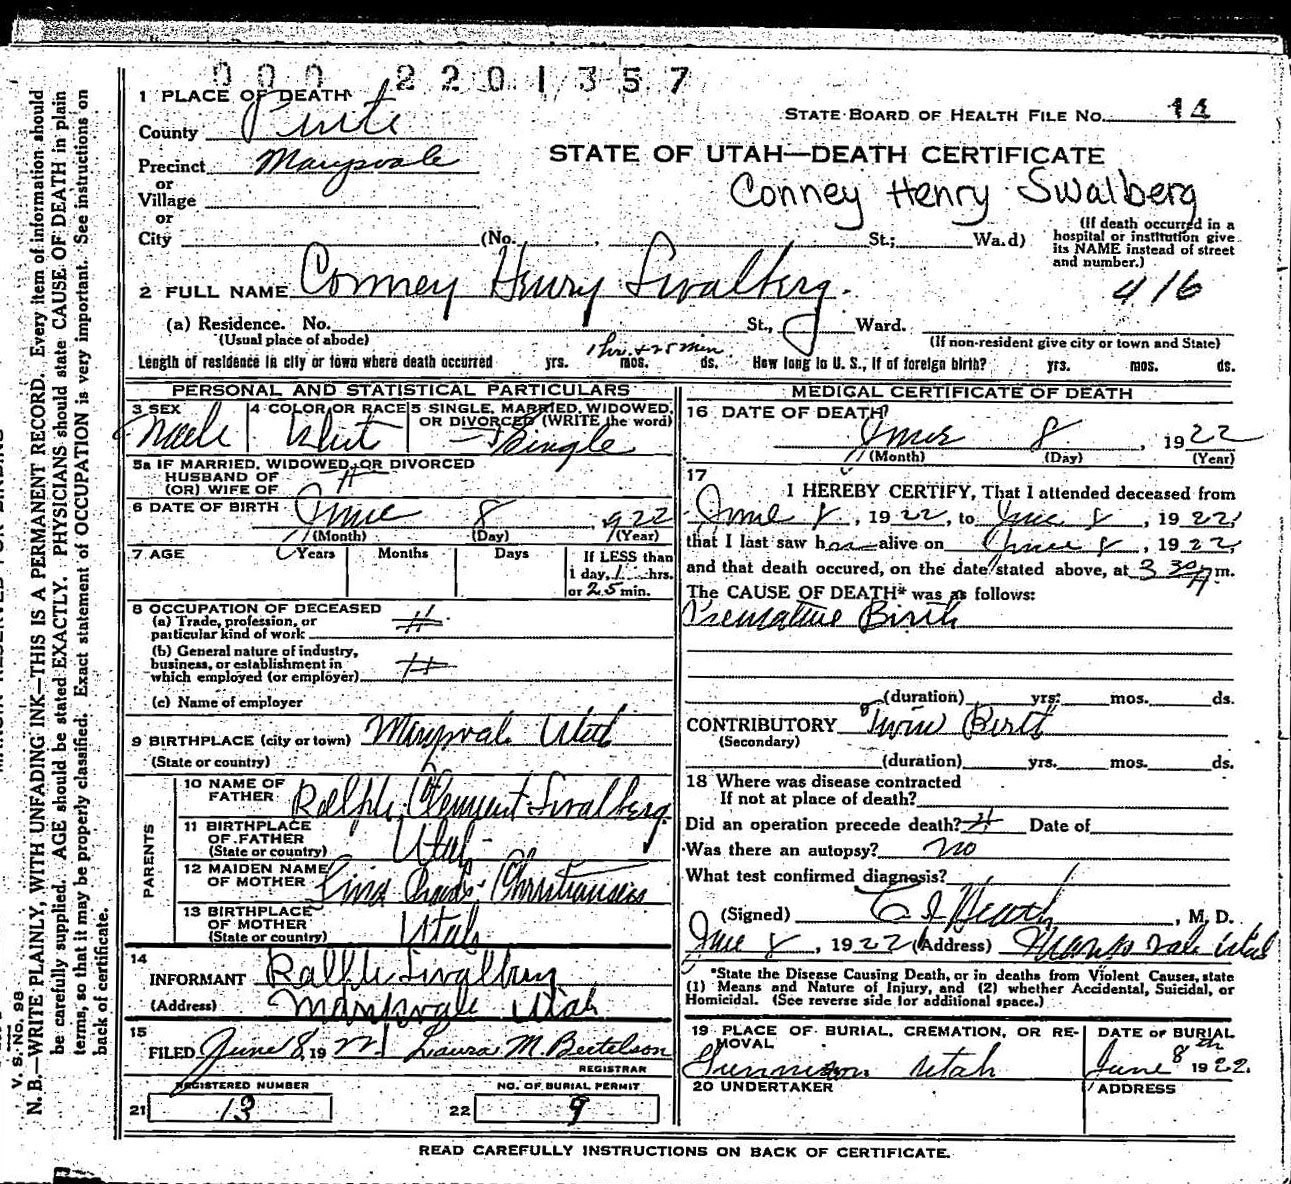 000 2201357
1 PLACE OF DEATH
County Piute
STATE BOARD OF HEALTH FILE No. 14
Precinct Marysvale
STATE OF UTAH—DEATH CERTIFICATE
or
Village
Conney Henry Swalberg
or
City (No. , St.; Wa.d)
(If death occurred in a
hospital or institution give
its NAME instead of street
and number.)
2 FULL NAME Conney Henry Swalberg.
416
(a) Residence. No. St., Ward.
(Usual place of abode)
(If non-resident give city or town and State)
Length of residence in city or town where death occurred yrs. mos. ds. 1 hr. + 25 min How long in U. S., if of foreign birth? yrs. mos. ds.
PERSONAL AND STATISTICAL PARTICULARS
3 SEX Male
4 COLOR OR RACE White
5 SINGLE, MARRIED, WIDOWED, OR DIVORCED (WRITE the word) Single
5a IF MARRIED, WIDOWED, OR DIVORCED
HUSBAND OF
(OR) WIFE OF
6 DATE OF BIRTH June 8, 1922
(Month) (Day) (Year)
7 AGE Years Months Days
If LESS than
1 day, 1 hrs.
or 25 min.
8 OCCUPATION OF DECEASED
(a) Trade, profession, or
particular kind of work
(b) General nature of industry,
business, or establishment in
which employed (or employer)
(c) Name of employer
9 BIRTHPLACE (city or town) Marysvale Utah
(State or country)
PARENTS
10 NAME OF
FATHER Ralph Clement Swalberg
11 BIRTHPLACE
OF FATHER
(State or country) Utah
12 MAIDEN NAME
OF MOTHER Christiansen
13 BIRTHPLACE
OF MOTHER
(State or country) Utah
14
INFORMANT Ralph Swalberg
(Address) Marysvale Utah
15
FILED June 8, 1922 Laura M. Bertelson
REGISTRAR
REGISTERED NUMBER
21 13
NO. OF BURIAL PERMIT
22 9
MEDICAL CERTIFICATE OF DEATH
16 DATE OF DEATH
June 8, 1922
(Month) (Day) (Year)
17
I HEREBY CERTIFY, That I attended deceased from
June 8, 1922, to June 8, 1922,
that I last saw h alive on June 8, 1922,
and that death occured, on the date stated above, at 3 30 A m.
The CAUSE OF DEATH* was as follows:
Premature Birth
(duration) yrs. mos. ds.
CONTRIBUTORY Twin Birth
(Secondary)
(duration) yrs. mos. ds.
18 Where was disease contracted
If not at place of death?
Did an operation precede death? Date of
Was there an autopsy? no
What test confirmed diagnosis?
(Signed) , M. D.
June 8, 1922 (Address) Marysvale Utah
*State the Disease Causing Death, or in deaths from Violent Causes, state
(1) Means and Nature of Injury, and (2) whether Accidental, Suicidal, or
Homicidal. (See reverse side for additional space.)
19 PLACE OF BURIAL, CREMATION, OR RE-
MOVAL
Gunnison Utah
DATE OF BURIAL
June 8th 1922.
20 UNDERTAKER
ADDRESS
READ CAREFULLY INSTRUCTIONS ON BACK OF CERTIFICATE.
V. S. No. 98
N. B.—WRITE PLAINLY, WITH UNFADING INK—THIS IS A PERMANENT RECORD. Every item of information should
be carefully supplied. AGE should be stated EXACTLY. PHYSICIANS should state CAUSE OF DEATH in plain
terms, so that it may be properly classified. Exact statement of OCCUPATION is very important. See instructions on
back of certificate.